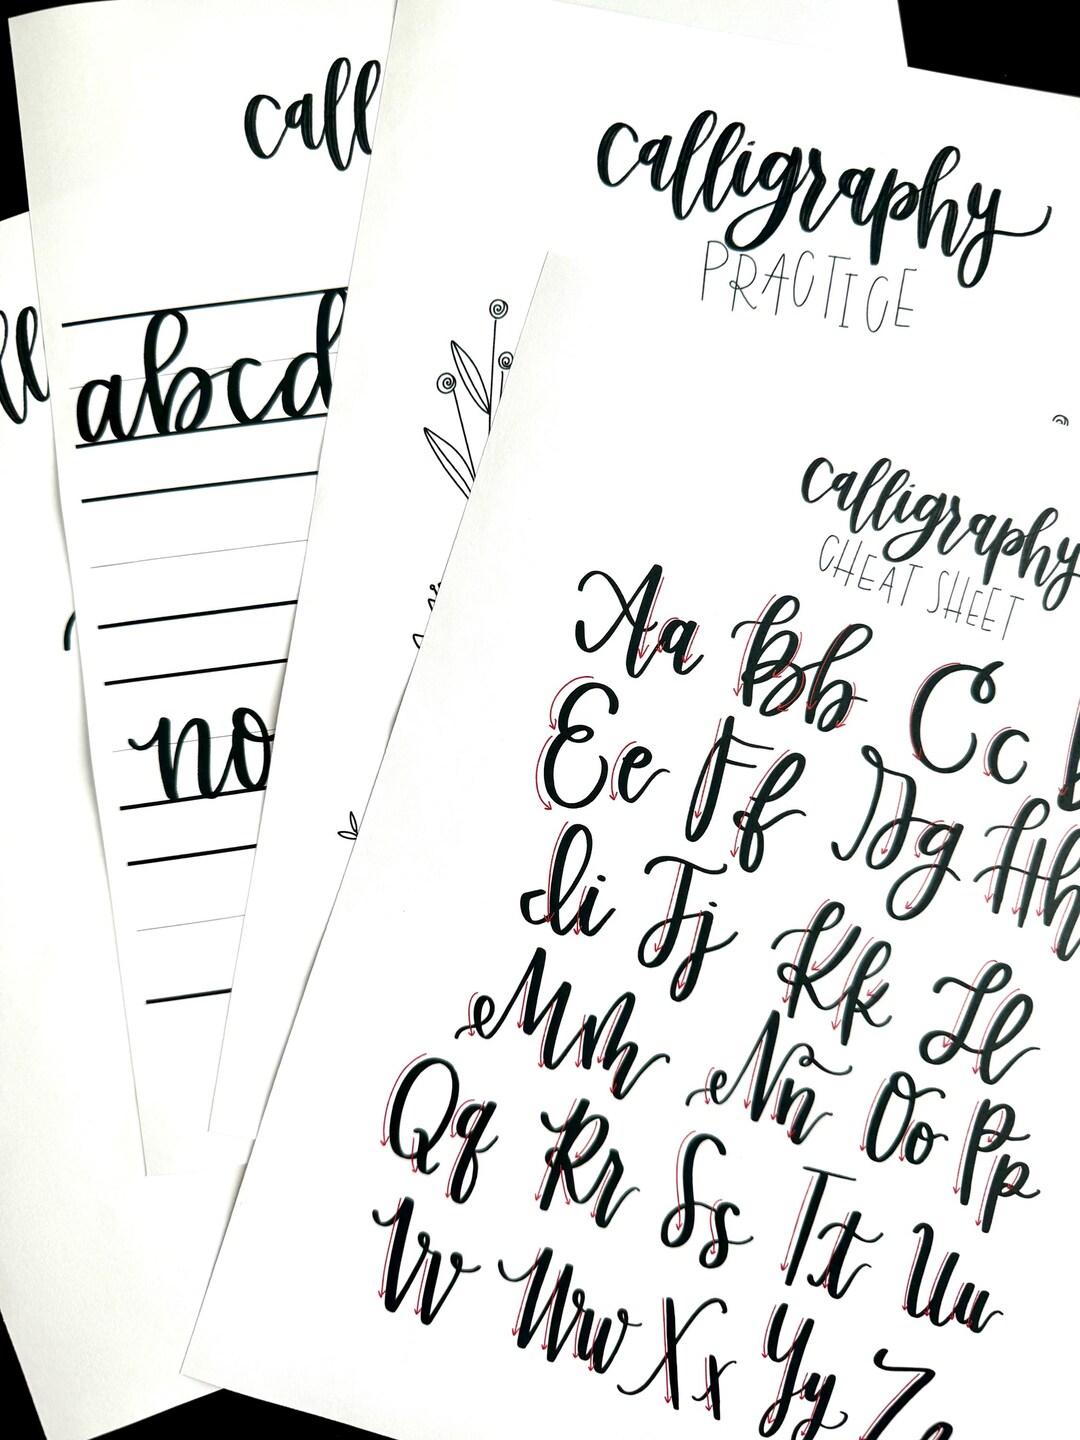 call
abcd
no
calligraphy
PRACTICE
calligraphy
CHEAT SHEET
Aa Bb Cc
Ee Ff Gg Hh
Ii Jj Kk Ll
Mm Nn Oo Pp
Qq Rr Ss Tt Uu
Vv Ww Xx Yy Zz